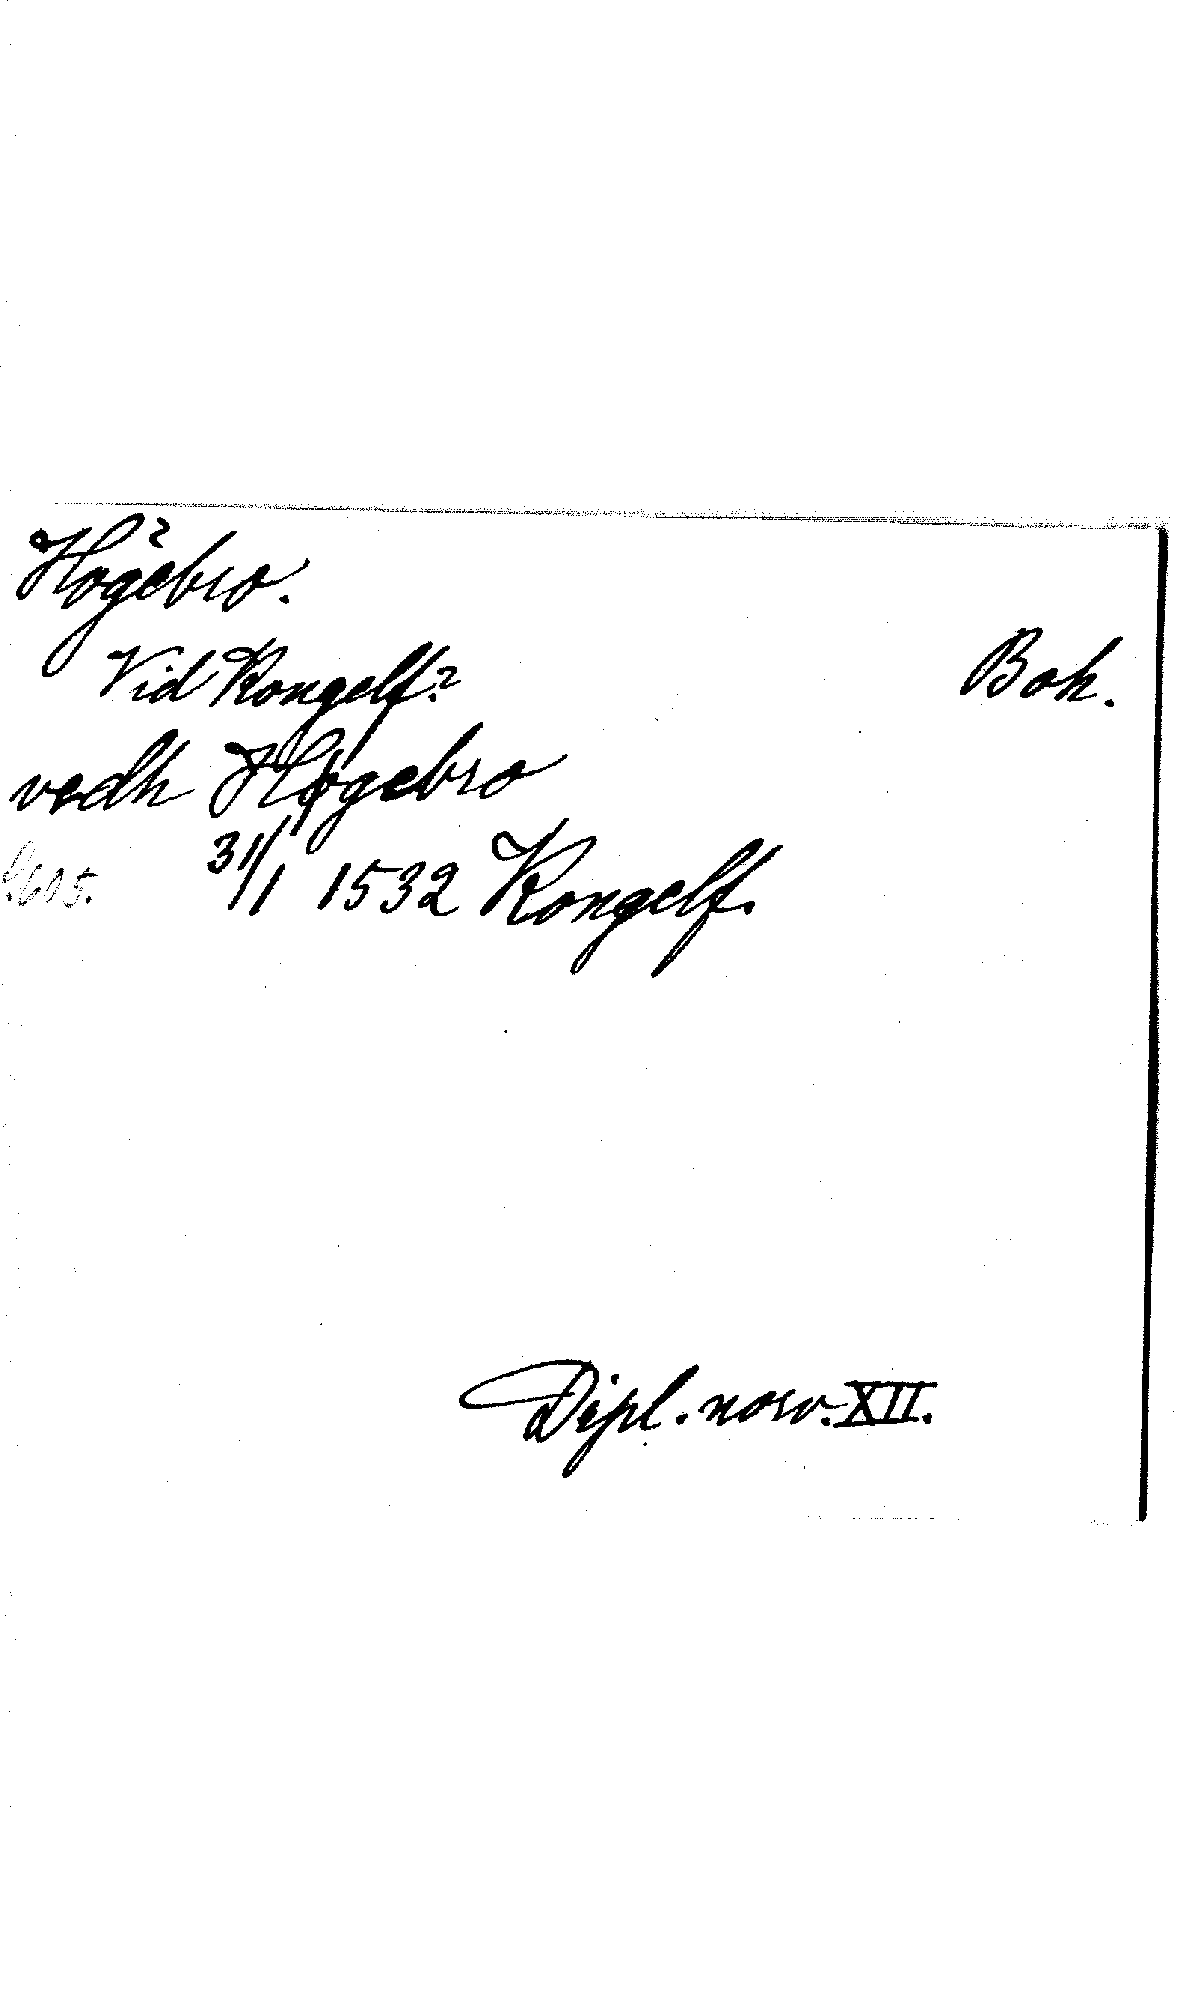 Högebro.
Vid Kongelf?
Boh.
vedh Høgebro
S. 615. 31/1 1532 Kongelf.
Dipl. norv. XII.